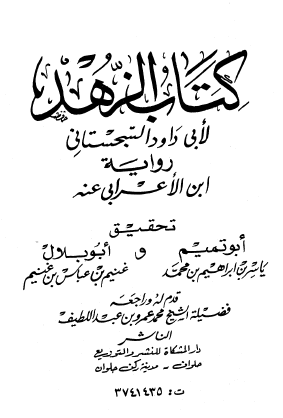 كتاب الزهد
لأبي داود السجستاني
رواية
ابن الأعرابي عنه
تحقيق
أبو تميم و أبو بلال
ياسر بن ابراهيم بن محمد غنيم بن عباس بن غنيم
قدم له وراجعه
فضيلة الشيخ محمد عمرو بن عبد اللطيف
الناشر
دار المشكاة للنشر والتوزيع
حلوان - مدينة ركن حلوان
ت: ٣٧٤١٤٣٥